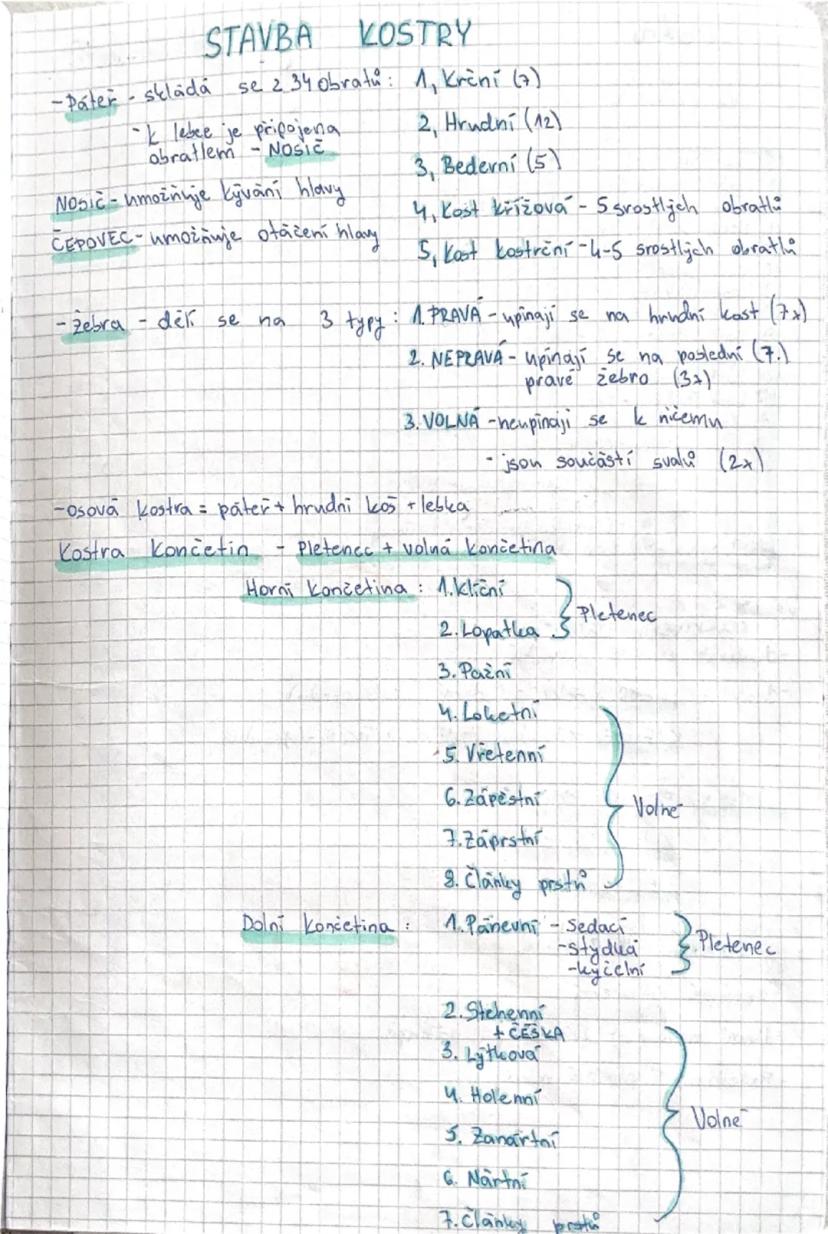 STAVBA KOSTRY
-Páteř - skládá se z 34 obratlů: 1, Krční (7)
- k lebce je připojena 2, Hrudní (12)
obratlem - NOSIČ
3, Bederní (5)
NOSIČ - umožňuje kývání hlavy
4, Kost křížová - 5 srostlých obratlů
ČEPOVEC - umožňuje otáčení hlavy
5, Kost kostrční - 4-5 srostlých obratlů
- žebra - dělí se na 3 typy: 1. PRAVÁ - upínají se na hrudní kost (7x)
2. NEPRAVÁ - upínají se na poslední (7.)
pravé žebro (3x)
3. VOLNÁ - neupínají se k ničemu
- jsou součástí svalů (2x)
-osová kostra = páteř + hrudní koš + lebka
Kostra Končetin - Pletenec + volná Končetina
Horní Končetina: 1. Klíční
2. Lopatka
Pletenec
3. Pažní
4. Loketní
5. Vřetenní
6. Zápěstní
Volné
7. Záprstní
8. Články prstů
Dolní Končetina: 1. Pánevní - Sedací
-stydká
Pletenec
-kyčelní
2. Stehenní
+ ČÉŠKA
3. Lýtková
4. Holenní
Volné
5. Zanártní
6. Nártní
7. Články prstů